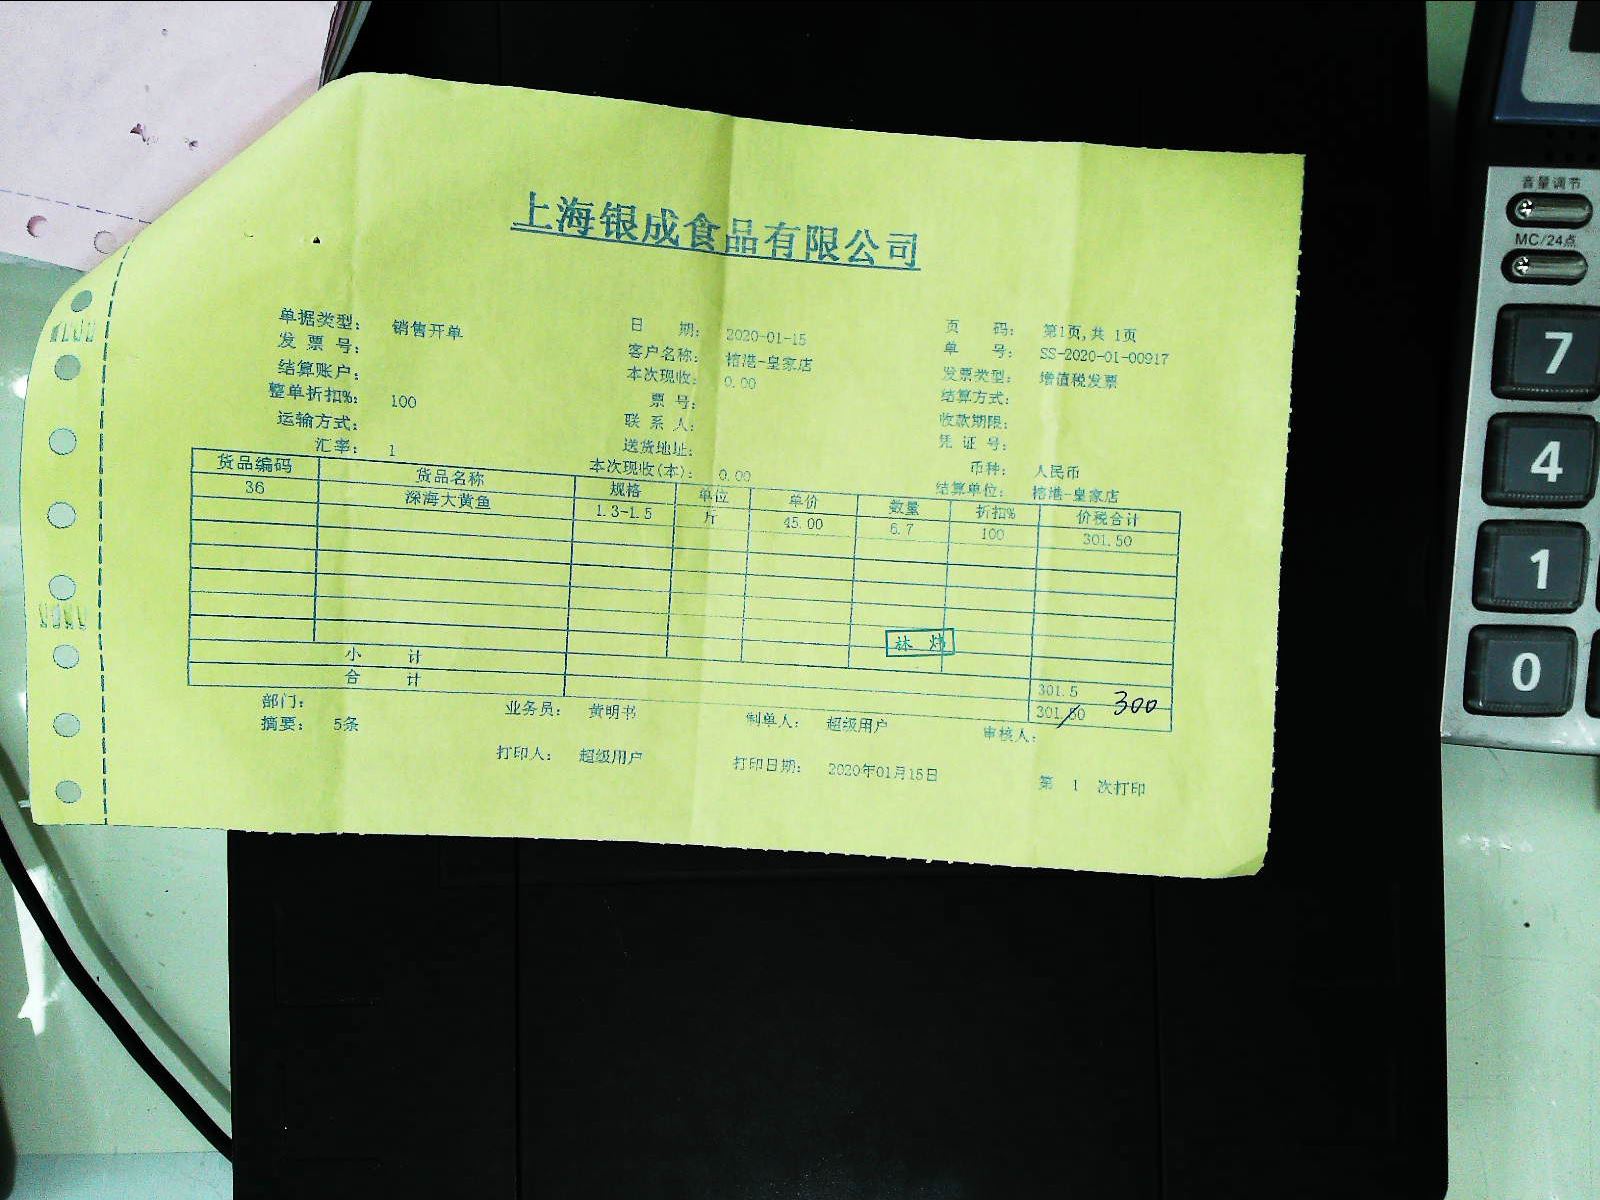 上海银成食品有限公司
单据类型： 销售开单 日 期： 2020-01-15 页 码： 第1页,共 1页
发 票 号： 客户名称： 榕港-皇家店 单 号： SS-2020-01-00917
结算账户： 本次现收： 0.00 发票类型： 增值税发票
整单折扣%： 100 票 号： 结算方式：
运输方式： 联 系 人： 收款期限：
汇率： 1 送货地址： 凭 证 号：
本次现收(本)： 0.00 币种： 人民币
结算单位： 榕港-皇家店
货品编码 货品名称 规格 单位 单价 数量 折扣% 价税合计
36 深海大黄鱼 1.3-1.5 斤 45.00 6.7 100 301.50
小 计 301.5
合 计 301.50 300
部门： 业务员： 黄明书 制单人： 超级用户 审核人：
摘要： 5条
打印人： 超级用户 打印日期： 2020年01月15日 第 1 次打印
音量调节
MC/24点
7
4
1
0